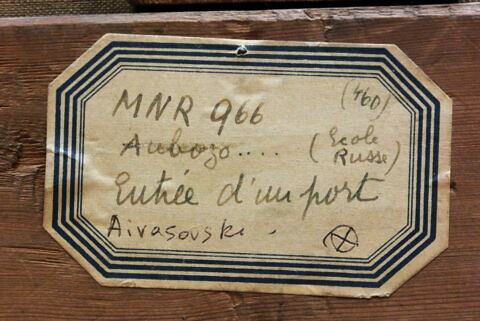 MNR 966 (460)
Aubozo.... (Ecole Russe)
Entrée d'un port
Aivasovski.